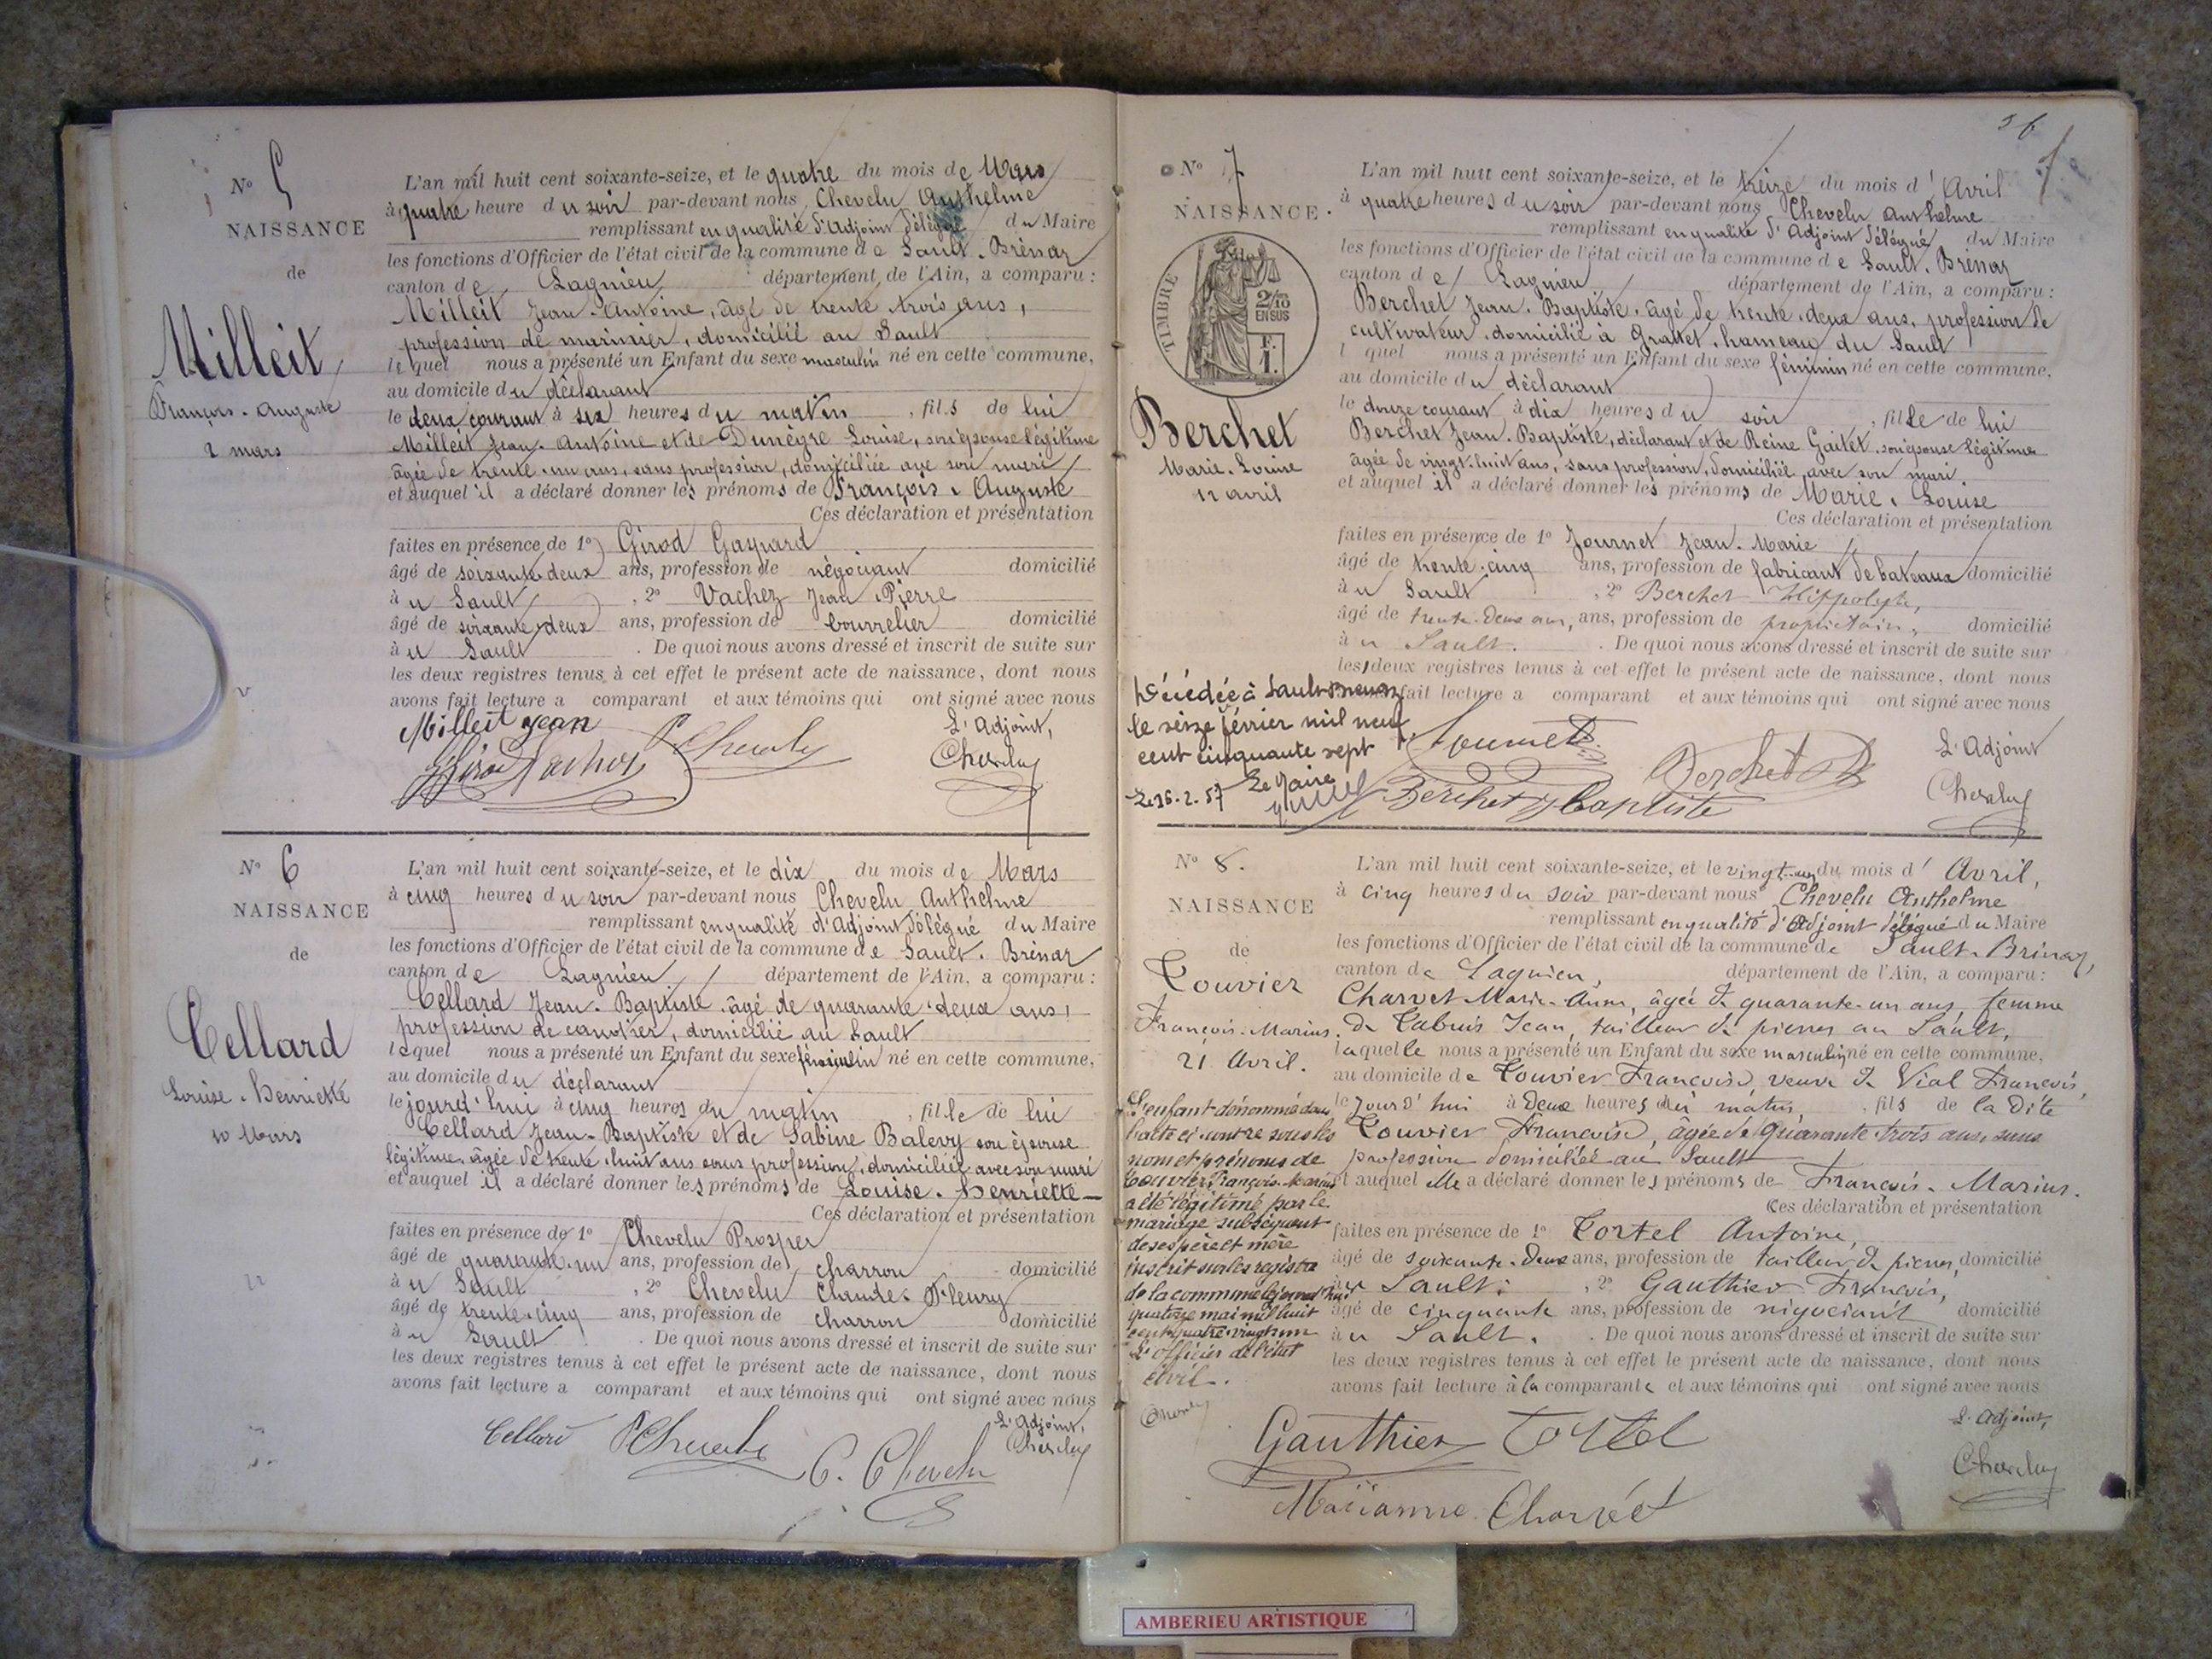 N° 5
NAISSANCE
de
Milleit
François-Auguste
2 mars
L'an mil huit cent soixante-seize, et le quatre du mois de Mars
à quatre heure du soir par-devant nous Chevelu Anthelme
remplissant en qualité d'Adjoint délégué du Maire
les fonctions d'Officier de l'état civil de la commune de Sault-Brénaz
canton de Lagnieu département de l'Ain, a comparu :
Milleit Jean-Antoine, âgé de trente trois ans,
profession de marinier, domicilié au Sault
lequel nous a présenté un Enfant du sexe masculin né en cette commune,
au domicile du déclarant
le deux courant à six heures du matin, fils de lui
Milleit Jean-Antoine et de Dunègre Louise, son épouse légitime
âgée de trente-un ans, sans profession, domiciliée ave son mari
et auquel il a déclaré donner les prénoms de François-Auguste
Ces déclaration et présentation
faites en présence de 1° Girod Gaspard
âgé de soixante-deux ans, profession de négociant domicilié
au Sault, 2° Vachez Jean-Pierre
âgé de soixante-deux ans, profession de bourrelier domicilié
au Sault. De quoi nous avons dressé et inscrit de suite sur
les deux registres tenus à cet effet le présent acte de naissance, dont nous
avons fait lecture a comparant et aux témoins qui ont signé avec nous
Milleit Jean
L'Adjoint,
Chevelu
N° 6
NAISSANCE
de
Cellard
Louise-Henriette
10 Mars
L'an mil huit cent soixante-seize, et le dix du mois de Mars
à cinq heures du soir par-devant nous Chevelu Anthelme
remplissant en qualité d'Adjoint délégué du Maire
les fonctions d'Officier de l'état civil de la commune de Sault-Brénaz
canton de Lagnieu département de l'Ain, a comparu :
Cellard Jean-Baptiste âgé de quarante-deux ans,
profession de cantonier, domicilié au Sault
lequel nous a présenté un Enfant du sexe né en cette commune,
au domicile du déclarant
le jourd'hui à cinq heures du matin, fille de lui
Cellard Jean-Baptiste et de Sabine Balevy son épouse
légitime, âgée de trente-huit ans sans profession, domiciliée avec son mari
et auquel il a déclaré donner les prénoms de Louise-Henriette
Ces déclaration et présentation
faites en présence de 1° Chevelu Prosper
âgé de quarante-un ans, profession de charron domicilié
au Sault, 2° Chevelu Claude-Fleury
âgé de trente-cinq ans, profession de charron domicilié
au Sault. De quoi nous avons dressé et inscrit de suite sur
les deux registres tenus à cet effet le présent acte de naissance, dont nous
avons fait lecture a comparant et aux témoins qui ont signé avec nous
L'Adjoint,
Cellard
Chevelu
C. Chevelu
36
N° 7
NAISSANCE.
TIMBRE
2/10
EN SUS
F.
1.
Berchet
Marie-Louise
12 avril
L'an mil huit cent soixante-seize, et le treize du mois d'Avril
à quatre heures du soir par-devant nous Chevelu Anthelme
remplissant en qualité d'Adjoint délégué du Maire
les fonctions d'Officier de l'état civil de la commune de Sault-Brénaz
canton de Lagnieu département de l'Ain, a comparu :
Berchet Jean-Baptiste, âgé de trente-deux ans, profession de
cultivateur, domicilié à Grattet, hameau du Sault
l quel nous a présenté un Enfant du sexe féminin né en cette commune,
au domicile du déclarant
le douze courant à dix heures du soir, fille de lui
Berchet Jean-Baptiste, déclarant et de Reine Gaitet son épouse légitime
âgée de vingt-huit ans, sans profession, domiciliée avec son mari
et auquel il a déclaré donner les prénoms de Marie-Louise
Ces déclaration et présentation
faites en présence de 1° Journet Jean-Marie
âgé de trente-cinq ans, profession de fabricant de bateaux domicilié
au Sault, 2° Berchet Hippolyte,
âgé de trente-deux ans, ans, profession de propriétaire, domicilié
au Sault. De quoi nous avons dressé et inscrit de suite sur
les deux registres tenus à cet effet le présent acte de naissance, dont nous
fait lecture a comparant et aux témoins qui ont signé avec nous
Décédée à Sault-Brenaz
le seize février mil neuf
cent cinquante sept
Le 16.2.57 Le Maire
Journet
Berchet
Berchet J Baptiste
L'Adjoint
Chevelu
N° 8.
NAISSANCE
de
Touvier
François-Marius.
21 Avril.
L'an mil huit cent soixante-seize, et le vingt-un du mois d'Avril,
à cinq heures du soir par-devant nous Chevelu Anthelme
remplissant en qualité d'Adjoint délégué du Maire
les fonctions d'Officier de l'état civil de la commune de Sault-Brénaz,
canton de Lagnieu, département de l'Ain, a comparu :
Charvet Marie-Anne, âgée de quarante-un ans, femme
de Tabuis Jean, tailleur de pierres au Sault,
laquelle nous a présenté un Enfant du sexe masculin né en cette commune,
au domicile de Touvier Françoise, veuve de Vial François,
le jourd'hui à deux heures du matin, fils de la dite
Touvier Françoise, âgée de quarante-trois ans, sans
profession domiciliée au Sault
et auquel elle a déclaré donner les prénoms de François-Marius.
Ces déclaration et présentation
faites en présence de 1° Tortel Antoine,
âgé de soixante-deux ans, profession de tailleur de pierres, domicilié
au Sault, 2° Gauthier François,
âgé de cinquante ans, profession de négociant domicilié
au Sault. De quoi nous avons dressé et inscrit de suite sur
les deux registres tenus à cet effet le présent acte de naissance, dont nous
avons fait lecture à la comparante et aux témoins qui ont signé avec nous
L'enfant dénommé dans
l'acte ci-contre sous les
nom et prénoms de
Touvier François-Marius
a été légitimé par le
mariage subséquent
de ses père et mère
inscrit sur les registre
de la commune le jourd'hui
quatorze mai mil huit
cent quatre-vingt-un
L'officier de l'état
civil.
Chevelu
Gauthier Tortel
Marianne Charvet
L'Adjoint,
Chevelu
AMBERIEU ARTISTIQUE